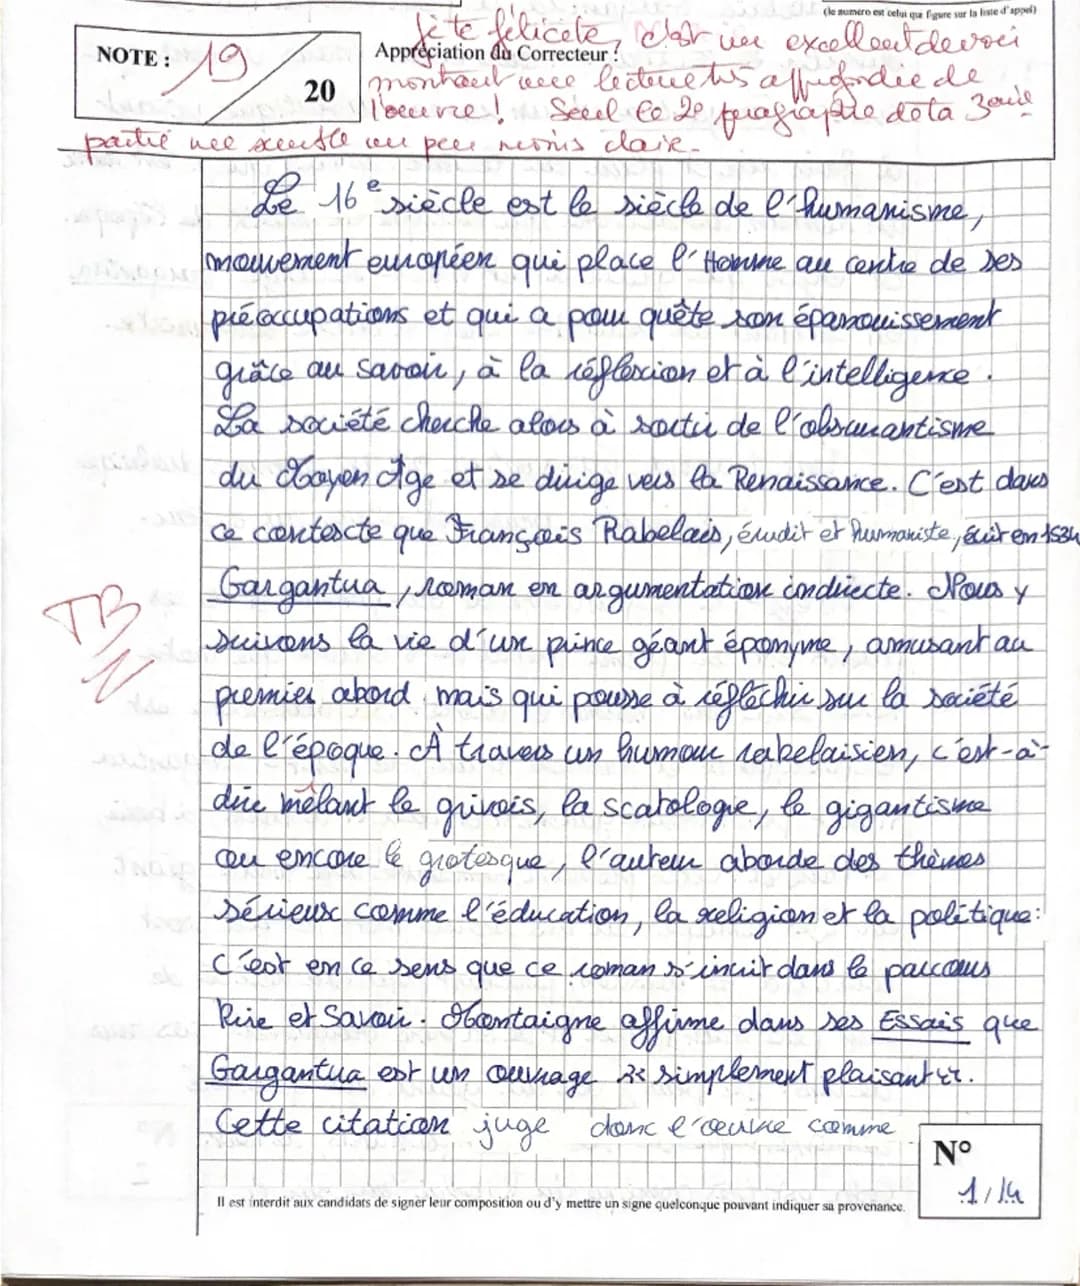 (le numéro est celui qui figure sur la liste d'appel)
NOTE : 19 / 20
Appréciation du Correcteur :
Je te félicite ! C'est un excellent devoir
montrant une lecture très approfondie de
l'œuvre ! Seul le 2e paragraphe de ta 3ème
partie me semble un peu moins clair.
Le 16e siècle est le siècle de l'humanisme,
mouvement européen qui place l'Homme au centre de ses
préoccupations et qui a pour quête son épanouissement
grâce au savoir, à la réflexion et à l'intelligence.
La société cherche alors à sortir de l'obscurantisme
du Moyen Âge et se dirige vers la Renaissance. C'est dans
ce contexte que François Rabelais, érudit et humaniste, écrit en 1534
Gargantua, roman en argumentation indirecte. Nous y
suivons la vie d'un prince géant éponyme, amusant au
premier abord mais qui pousse à réfléchir sur la société
de l'époque. À travers un humour rabelaisien, c'est-à-
dire mêlant le grivois, la scatologie, le gigantisme
ou encore le grotesque, l'auteur aborde des thèmes
sérieux comme l'éducation, la religion et la politique :
c'est en ce sens que ce roman s'incrit dans le parcours
Rire et Savoir. Montaigne affirme dans ses Essais que
Gargantua est un ouvrage « simplement plaisant ».
Cette citation juge donc l'œuvre comme
TB
N°
1/14
Il est interdit aux candidats de signer leur composition ou d'y mettre un signe quelconque pouvant indiquer sa provenance.